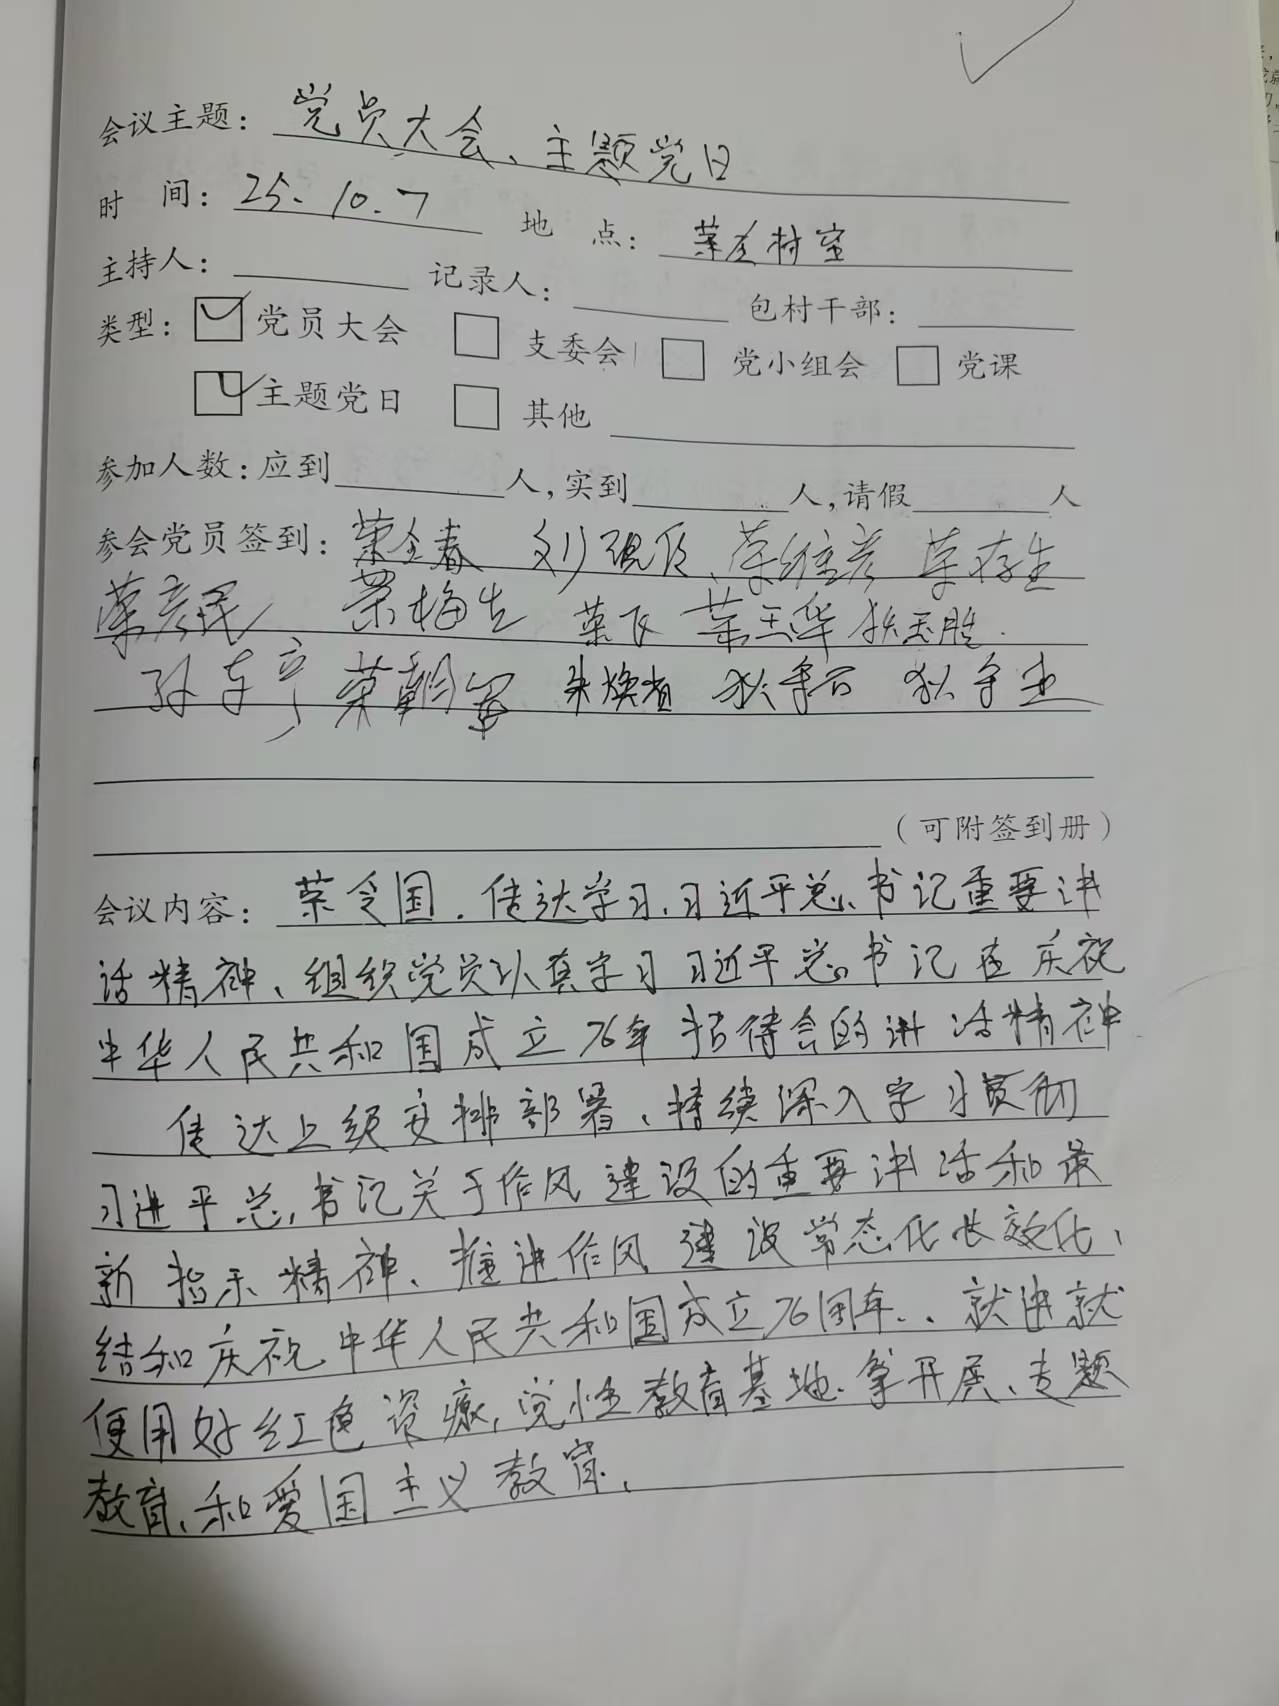 会议主题：党员大会、主题党日
时 间：25.10.7 地 点：荣庄村室
主持人： 记录人： 包村干部：
类型：党员大会 支委会 党小组会 党课
主题党日 其他
参加人数：应到 人，实到 人，请假 人
参会党员签到：荣全春 荣维彦 荣存生
荣彦民 荣梅生 荣飞 荣玉华
荣朝军 朱焕省
（可附签到册）
会议内容：荣令国．传达学习、习近平总书记重要讲
话精神、组织党员认真学习习近平总书记在庆祝
中华人民共和国成立76年招待会的讲话精神
传达上级安排部署、持续深入学习贯彻
习进平总书记关于作风建设的重要讲话和最
新指示精神、推进作风建设常态化长效化、
结和庆祝中华人民共和国成立76周年．．就进就
便用好红色资源，党性教育基地．等开展、专题
教育、和爱国主义教育、